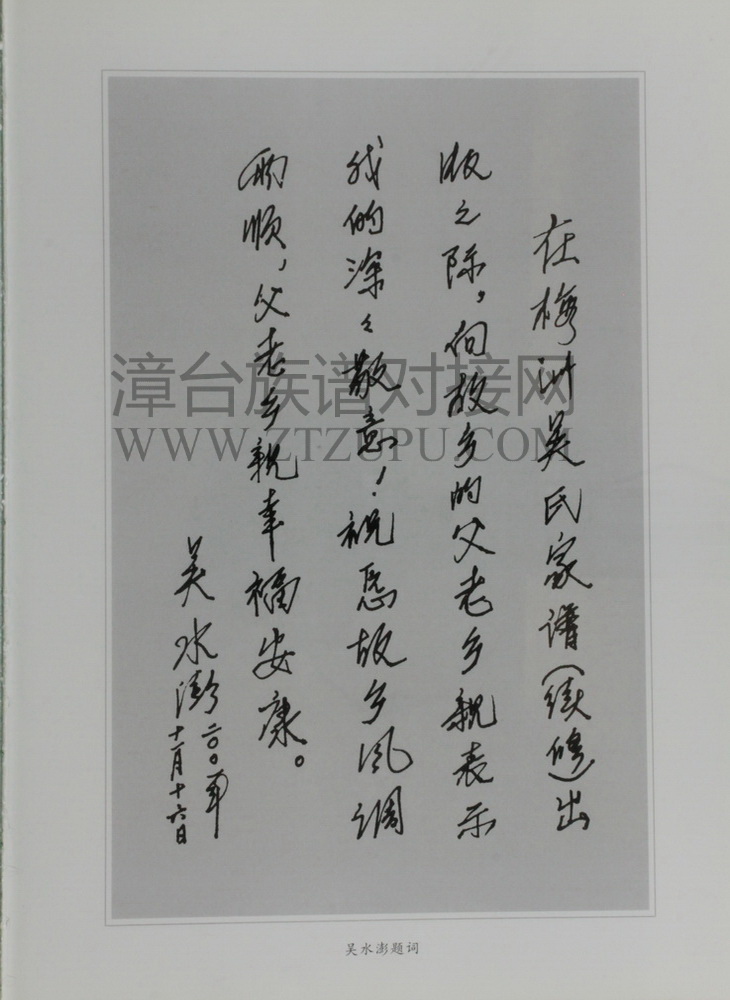 在梅洲吴氏家谱(续修)出
版之际,向故乡的父老乡親表示
我的深々敬意!祝愿故乡风调
雨顺,父老乡親幸福安康。
吴水澎
二〇〇八年
十一月十六日
漳台族谱对接网
WWW.ZTZUPU.COM
吴水澎题词